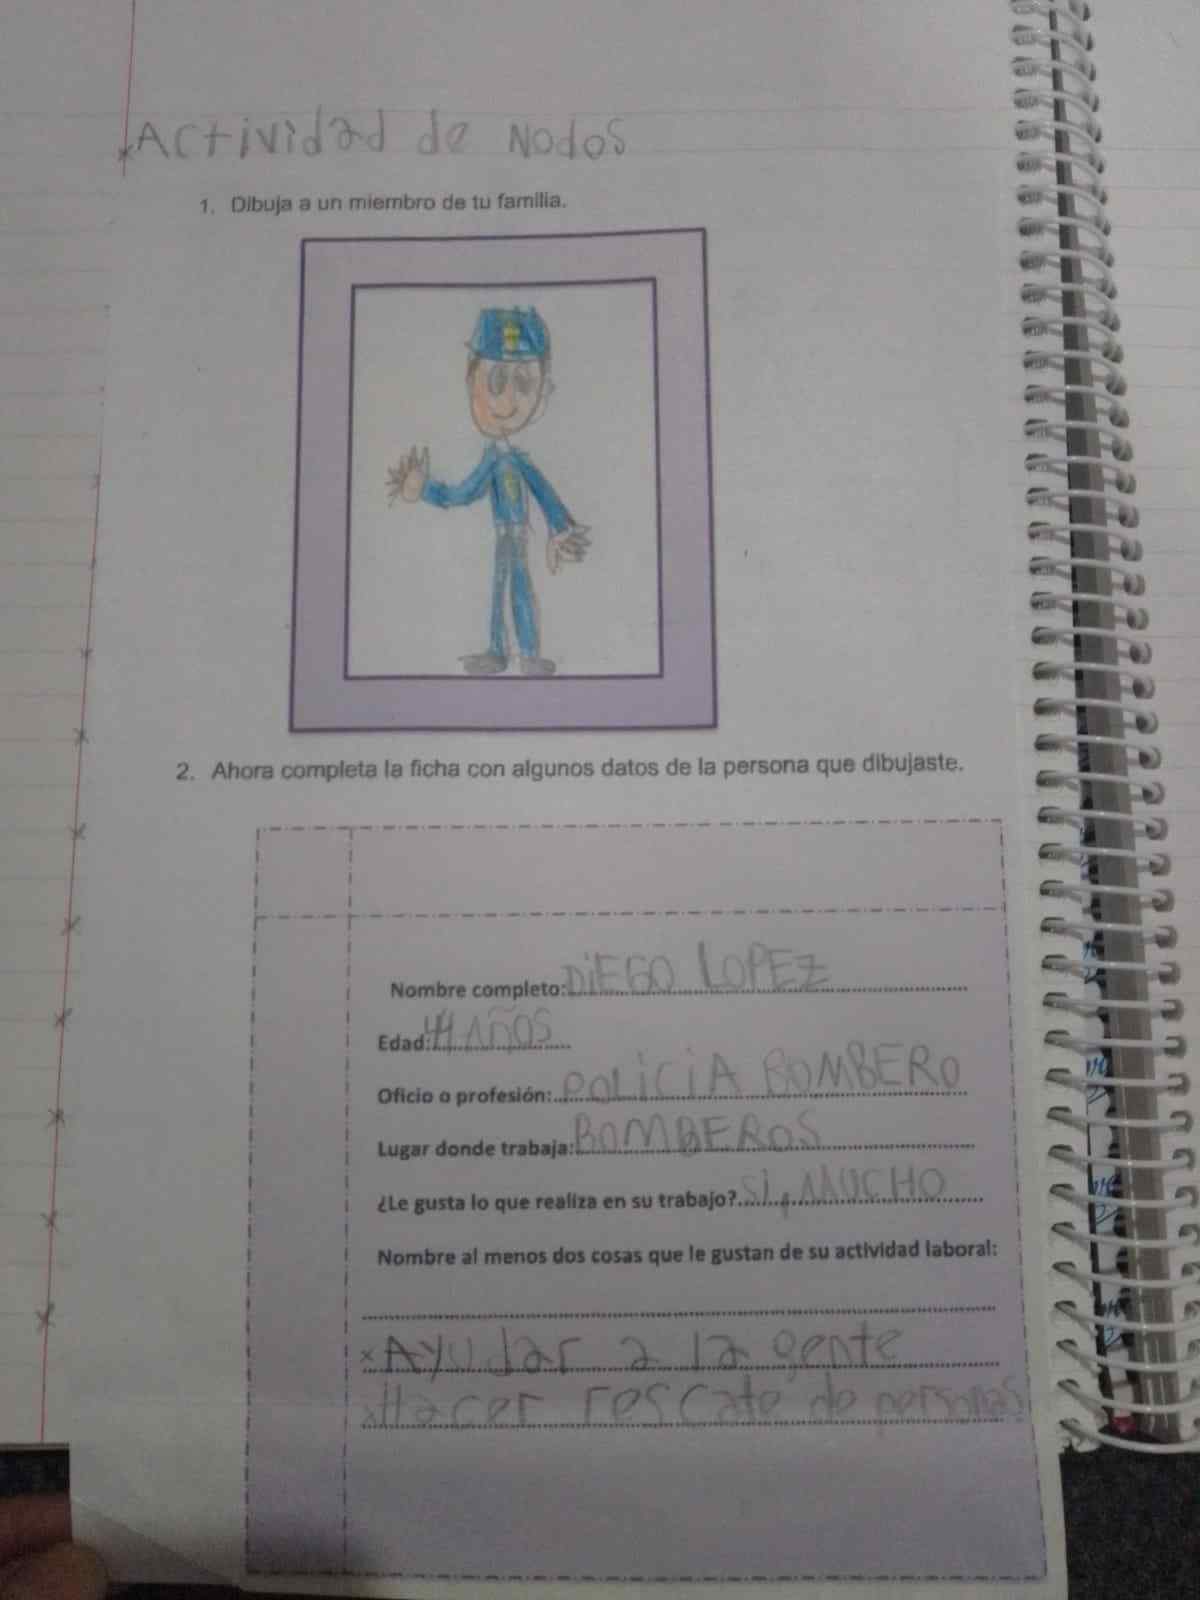 Actividad de Nodos
1. Dibuja a un miembro de tu familia.
2. Ahora completa la ficha con algunos datos de la persona que dibujaste.
Nombre completo: DIEGO LOPEZ
Edad: 44 AÑOS
Oficio o profesión: POLICIA BOMBERO
Lugar donde trabaja: BOMBEROS
¿Le gusta lo que realiza en su trabajo? SI, MUCHO
Nombre al menos dos cosas que le gustan de su actividad laboral:
x Ayudar a la gente
x Hacer rescate de personas